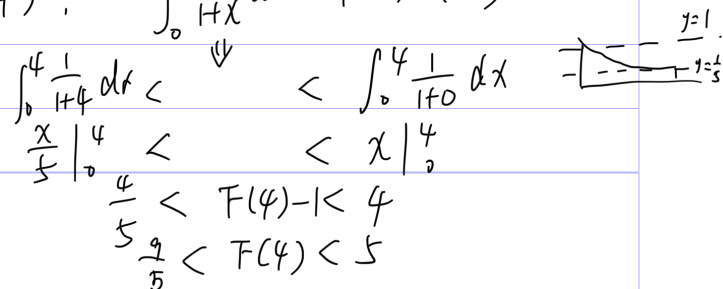 ∫₀ 1+x
⇓
y=1
∫₀⁴ 1/(1+4) dx < < ∫₀⁴ 1/(1+0) dx
y=1/5
x/5 |₀⁴ < < x |₀⁴
4/5 < F(4)-1 < 4
9/5 < F(4) < 5